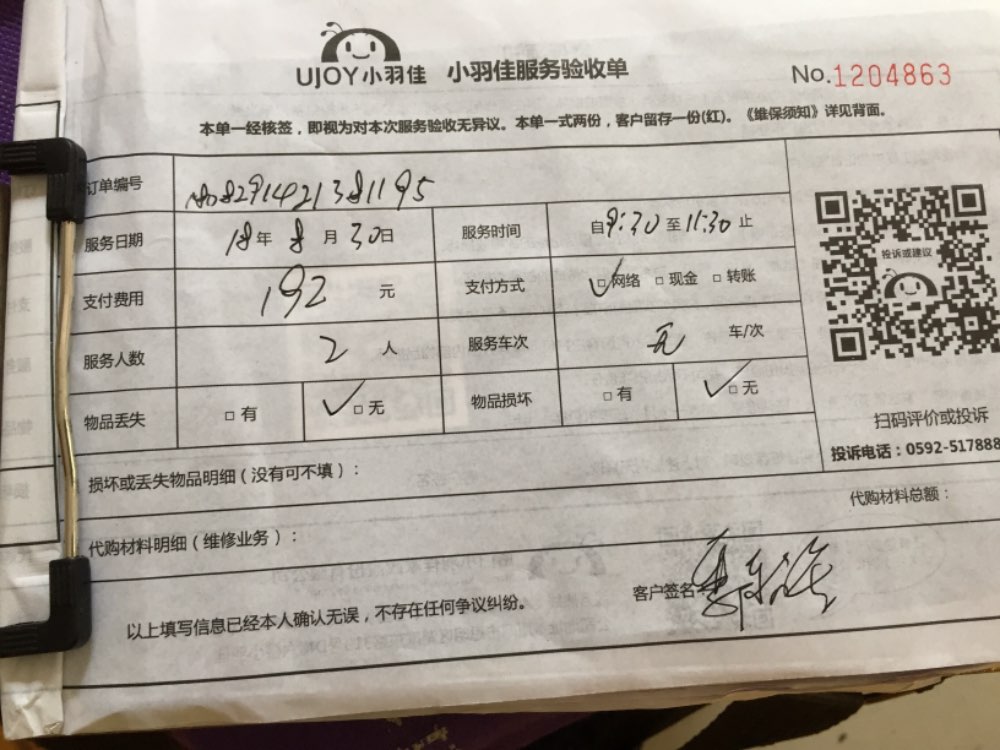 UJOY小羽佳 小羽佳服务验收单 No.1204863
本单一经核签，即视为对本次服务验收无异议。本单一式两份，客户留存一份(红)。《维保须知》详见背面。
订单编号
服务日期 18年8月30日 服务时间 自9:30至11:30止
支付费用 192元 支付方式 ✓□网络 □现金 □转账
服务人数 2人 服务车次 无 车/次
物品丢失 □有 ✓□无 物品损坏 □有 ✓□无
投诉或建议
扫码评价或投诉
投诉电话：0592-517888
损坏或丢失物品明细（没有可不填）：
代购材料明细（维修业务）： 代购材料总额：
以上填写信息已经本人确认无误，不存在任何争议纠纷。 客户签名